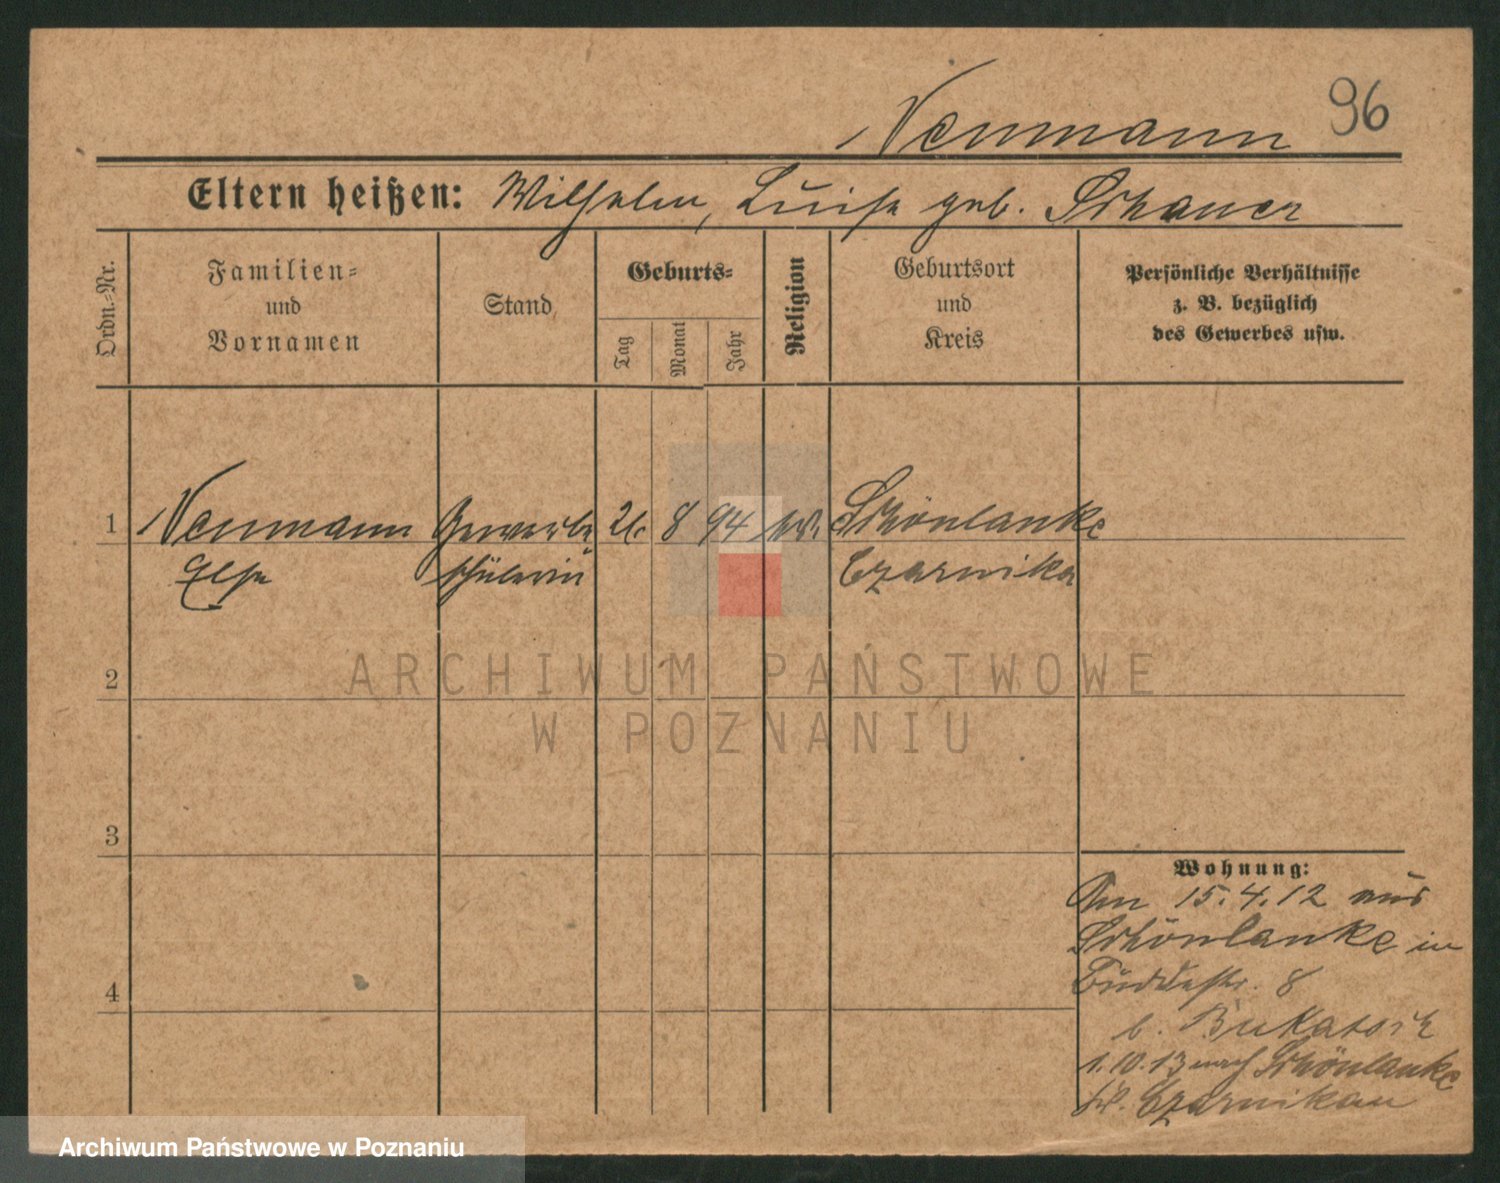 Neumann 96
Eltern heißen: Wilhelm, Luise geb. Schauer
Ordn.-Nr.
Familien-
und
Vornamen
Stand
Geburts-
Tag
Monat
Jahr
Religion
Geburtsort
und
Kreis
Persönliche Verhältnisse
z. B. bezüglich
des Gewerbes usw.
1 Neumann Gewerbe 21. 8 94 Schönlanke
Else schülerin Czarnika
2
3
4
Wohnung:
Am 15.4.12 aus
Schönlanke in
Buddestr. 8
b.
1.10.13 nach Schönlanke
Czarnikau
ARCHIWUM PAŃSTWOWE
W POZNANIU
Archiwum Państwowe w Poznaniu